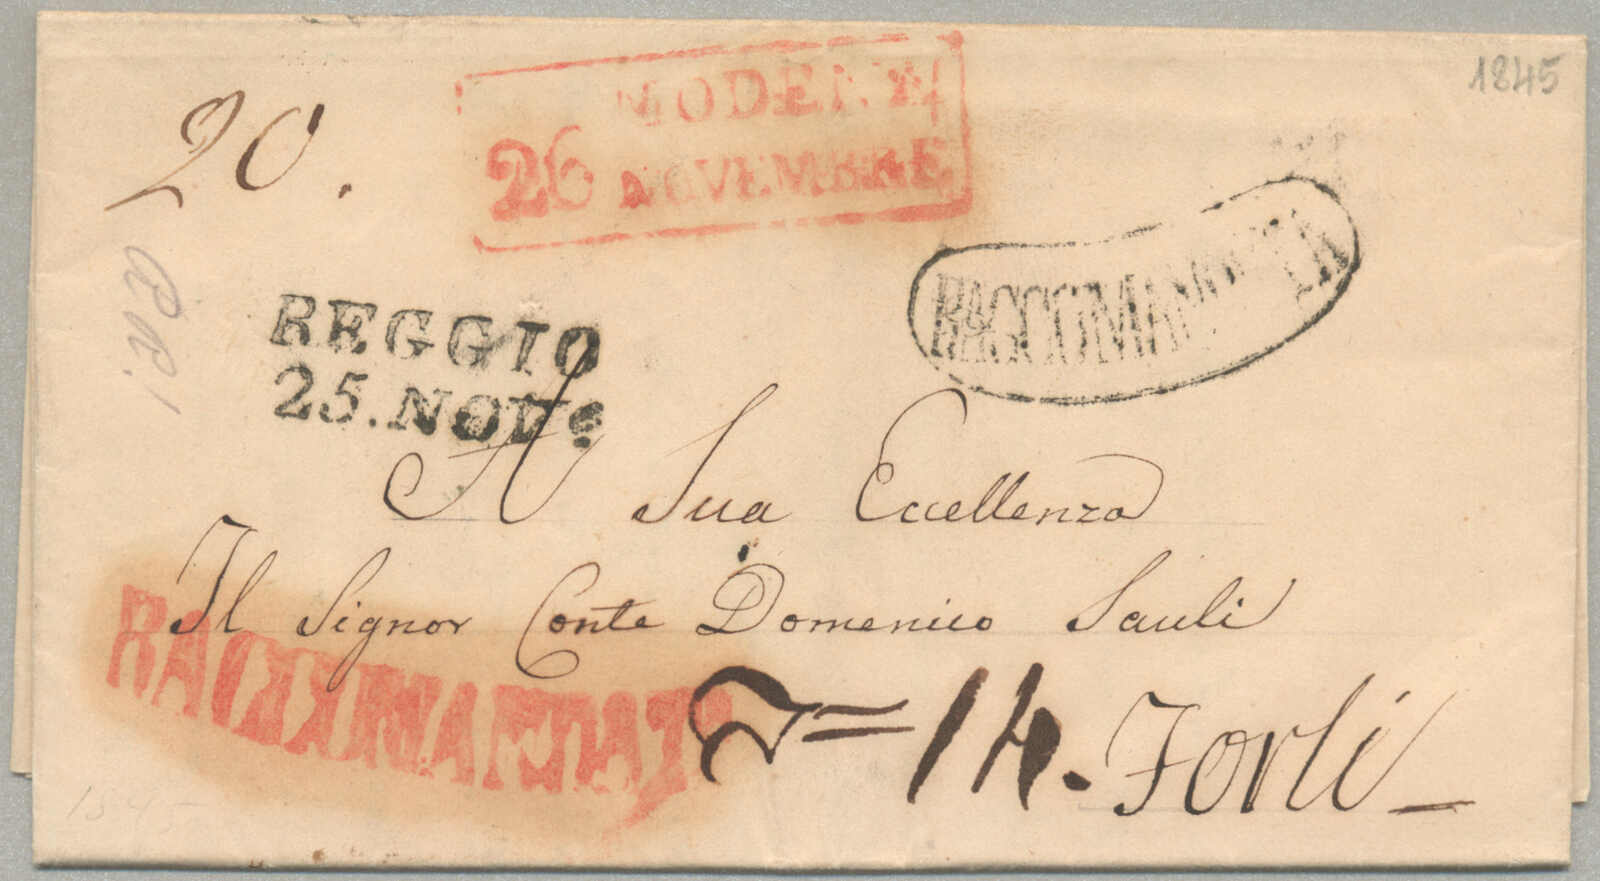 1845
20.
MODENA
26 NOVEMBRE
RACCOMANDATA
REGGIO
25. NOVE
A Sua Eccellenza
Il Signor Conte Domenico Sauli
RACCOMANDATA
= 14. Forlì
1845